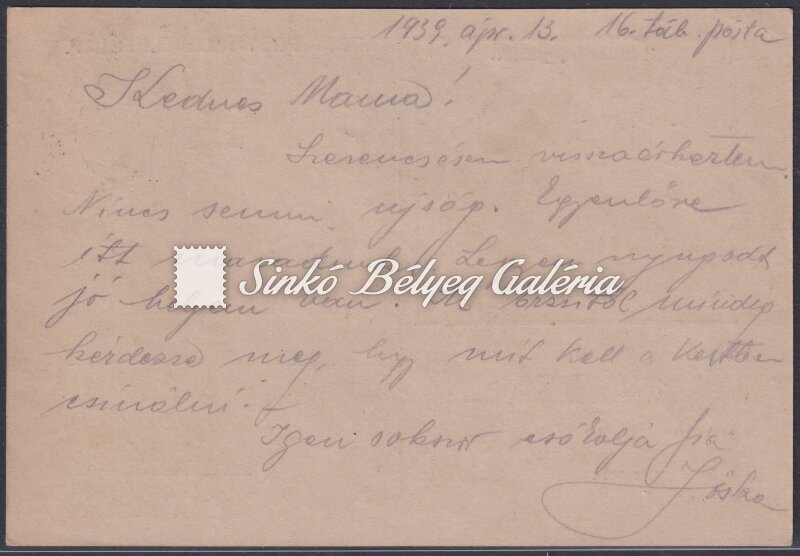 1939. ápr. 13. 16. táb. pósta
Kedves Mama!
Szerencsésen visszaérkeztem.
Nincs semmi ujság. Egyenlőre
itt maradunk. Legyen nyugodt
jó helyen van.
mindég
kérdezze meg, hogy mit kell a kertben
csinálni.-
Igen sokszor csókolja fia
Jóska
Sinkó Bélyeg Galéria